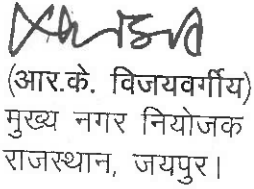 (आर.के. विजयवर्गीय)
मुख्य नगर नियोजक
राजस्थान, जयपुर।